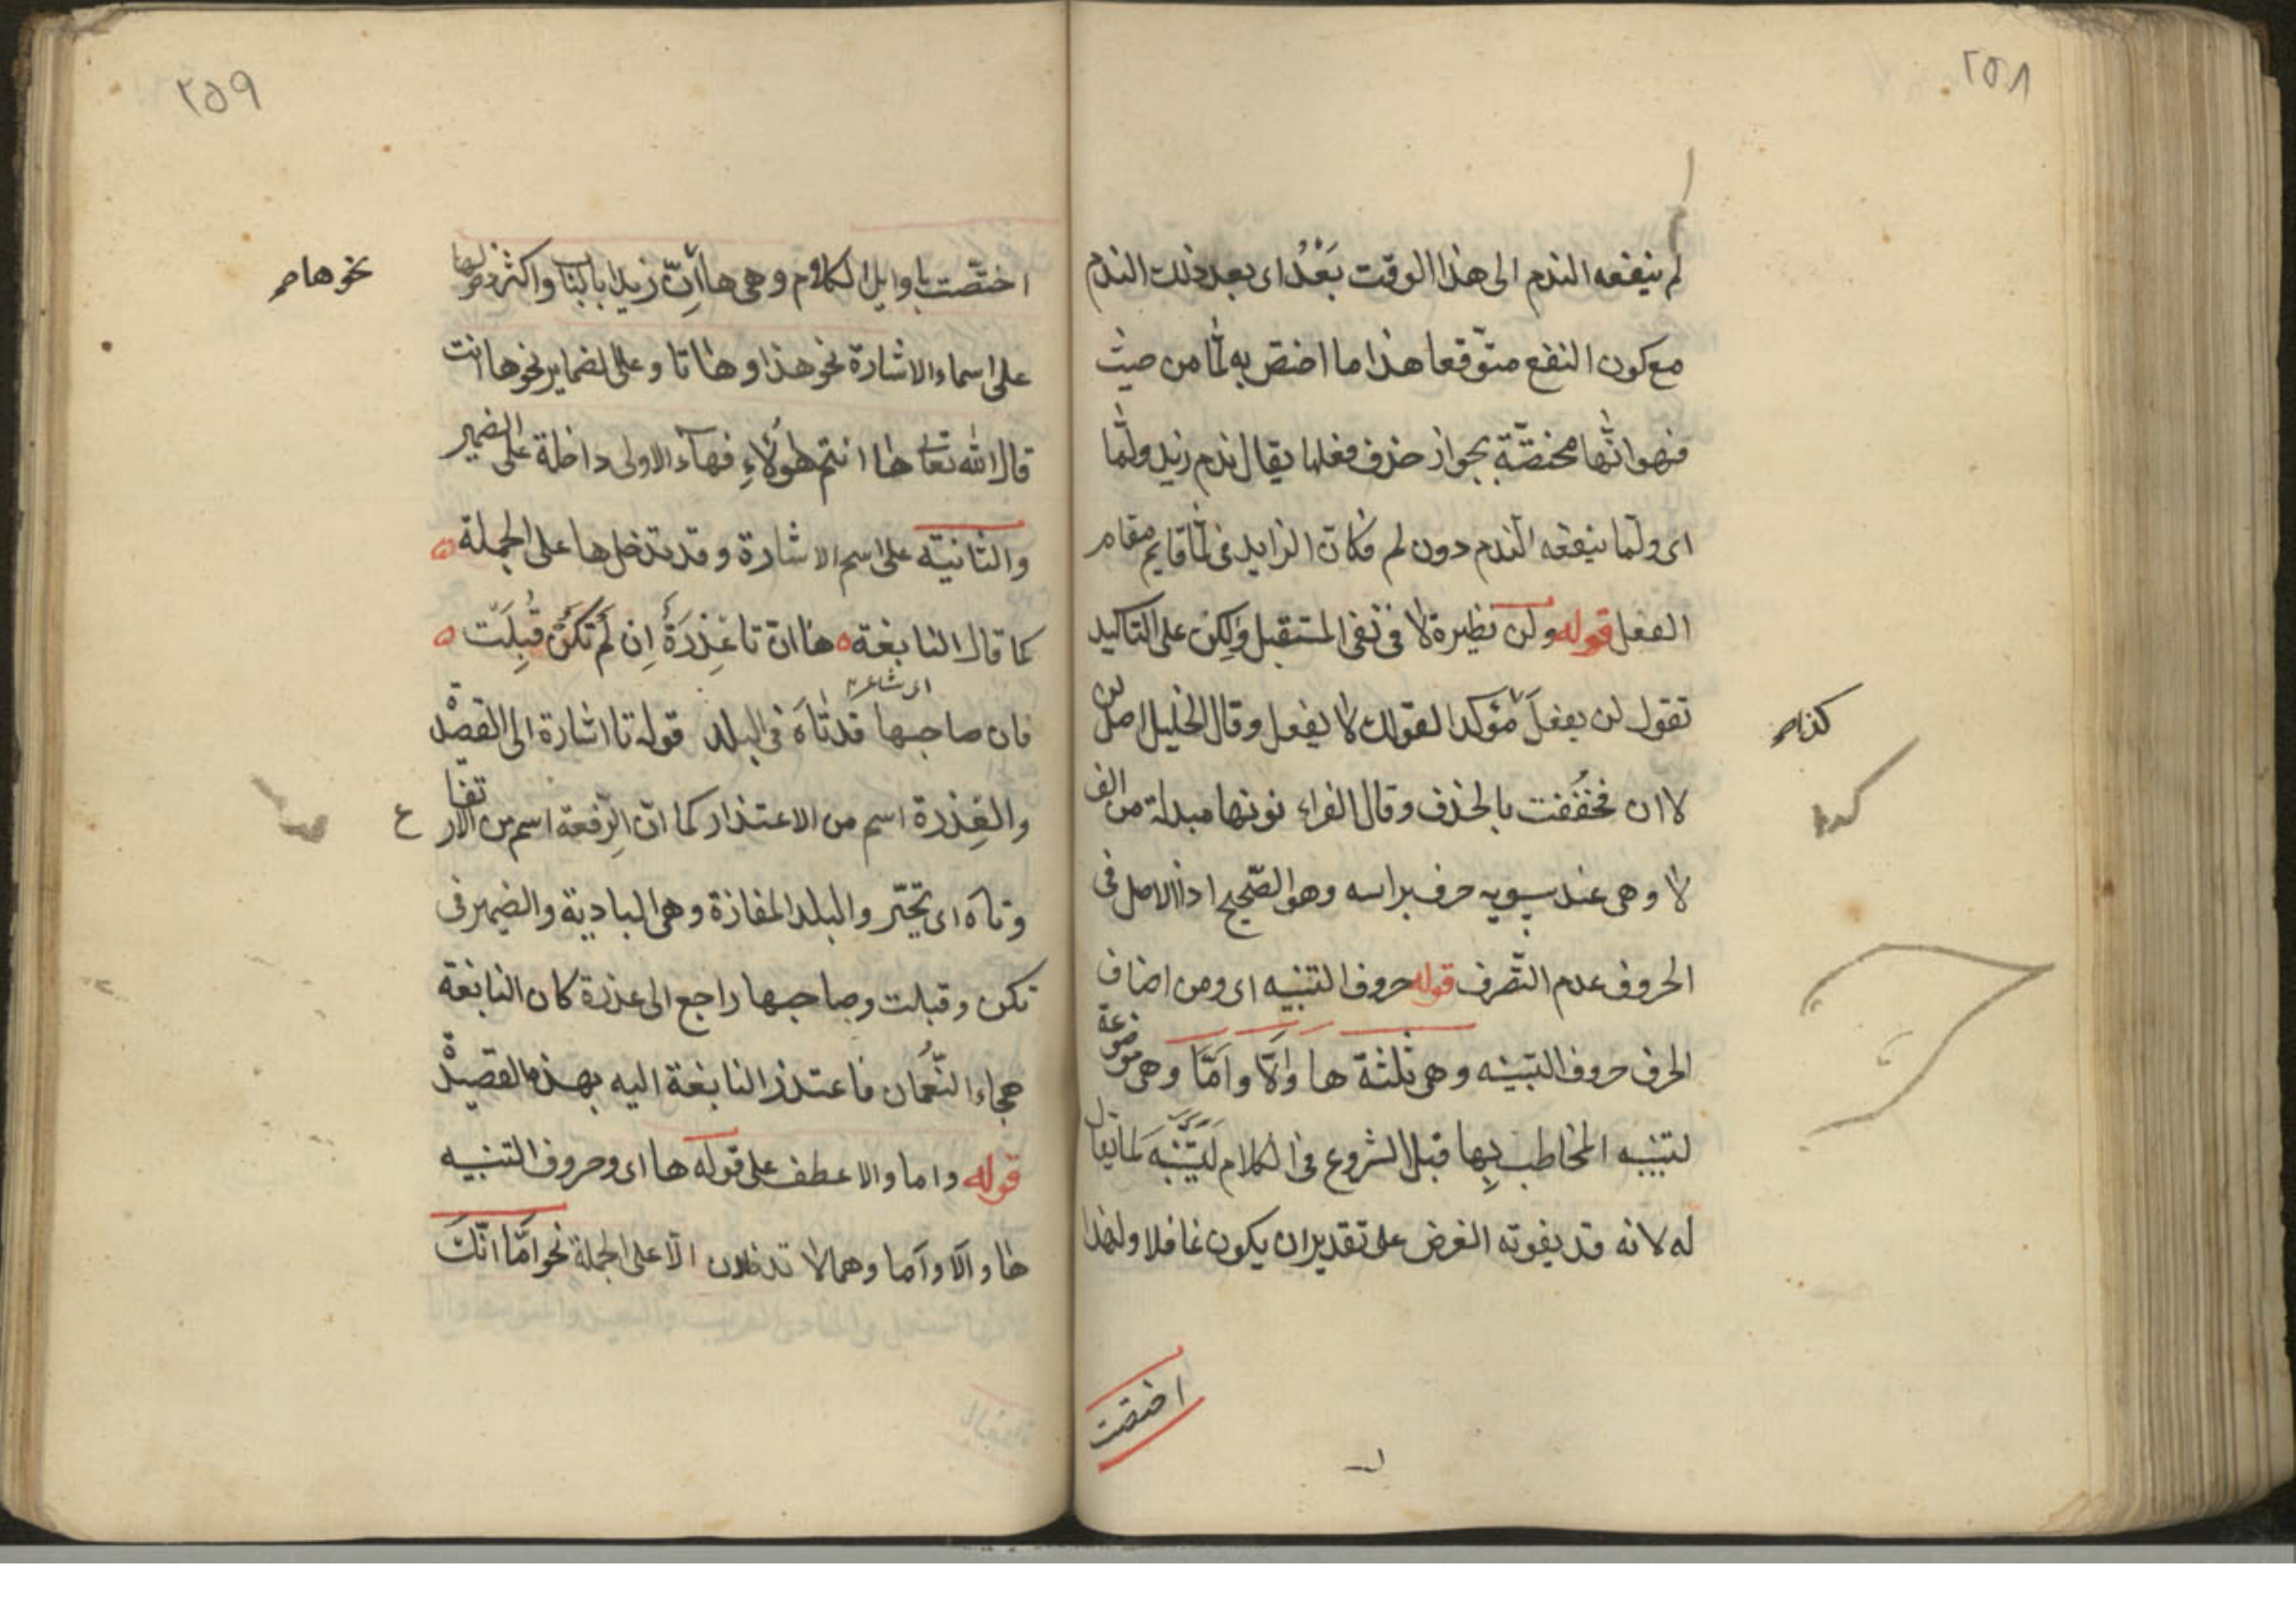 ٢٥٨
لم ينفعه الندم الى هذا الوقت بَعْدُ اى بعد ذلك الندم
مع كون النفع متوّقعا هذا ما اختص به لمّا من حيث
فهو انّها مختصّة بجواز حذف فعلها يقال ندم زيد ولمّا
اى ولمّا ينفعه النّدم دون لم فكان الزايد فى لمّا قايم مقام
الفعل قوله ولن نظيرة لا فى نفى المستقبل ولكن على التاكيد
تقول لن يفعلَ مؤكدا لقولك لا يفعل وقال الخليل اصل لن
لا ان فخُفّفت بالحذف وقال الفراء نونها مبدلة من الف
لا وهى عند سيبويه حرف براسه وهو الصّحيح اذ الاصل فى
الحروف عدم التّصرف قوله حروف التنبيه اى ومن اصناف
الحرف حروف التنبيه وهى ثلثة ها وَاَلا واَمَا وهى موضوعة
لتنبيه المخاطب بِها قبل الشروع فى الكلام لَيَتَنَبَّهَ لما يقال
له لانه قد يفوته الغرض على تقدير ان يكون غافلا ولهذا
اختصت
٢٥٩
اختصّت باوايل الكلام وهى ها اِنّ زيدا بالباب واكثر دخولها
نحو ها
على اسماء الاشارة نحو هذا وهاتا وعلى الضماير نحو ها انت
قال الله تعالى ها انتم هؤلاءِ فهاء الاولى داخلة على الضمير
والثانية على اسم الاشارة وقد تدخل ها على الجملة
كما قال النابغة ها ان تا عِذرَةٌ اِن لَم تكن قُبِلَت
اى شاعر
فان صاحبها قد تَاهَ فى البلد قوله تا اشارة الى القصيدة
والعِذرة اسم من الاعتذار كما انّ الرِّفعة اسم من الارتفاع
وتاه اى تحيّر والبلد المفازة وهى البادية والضمير فى
تكن وقبلت وصاحبها راجع الى عذرة كان النابغة
هجاء النُّعمان فاعتذر النابغة اليه بهذه القصيدة
قوله واما والا عطف على قوله ها اى وحروف التنبيه
ها وَاَلا واَما وهما لا تدخلان الّا على الجملة نحو اَمَا انّكَ